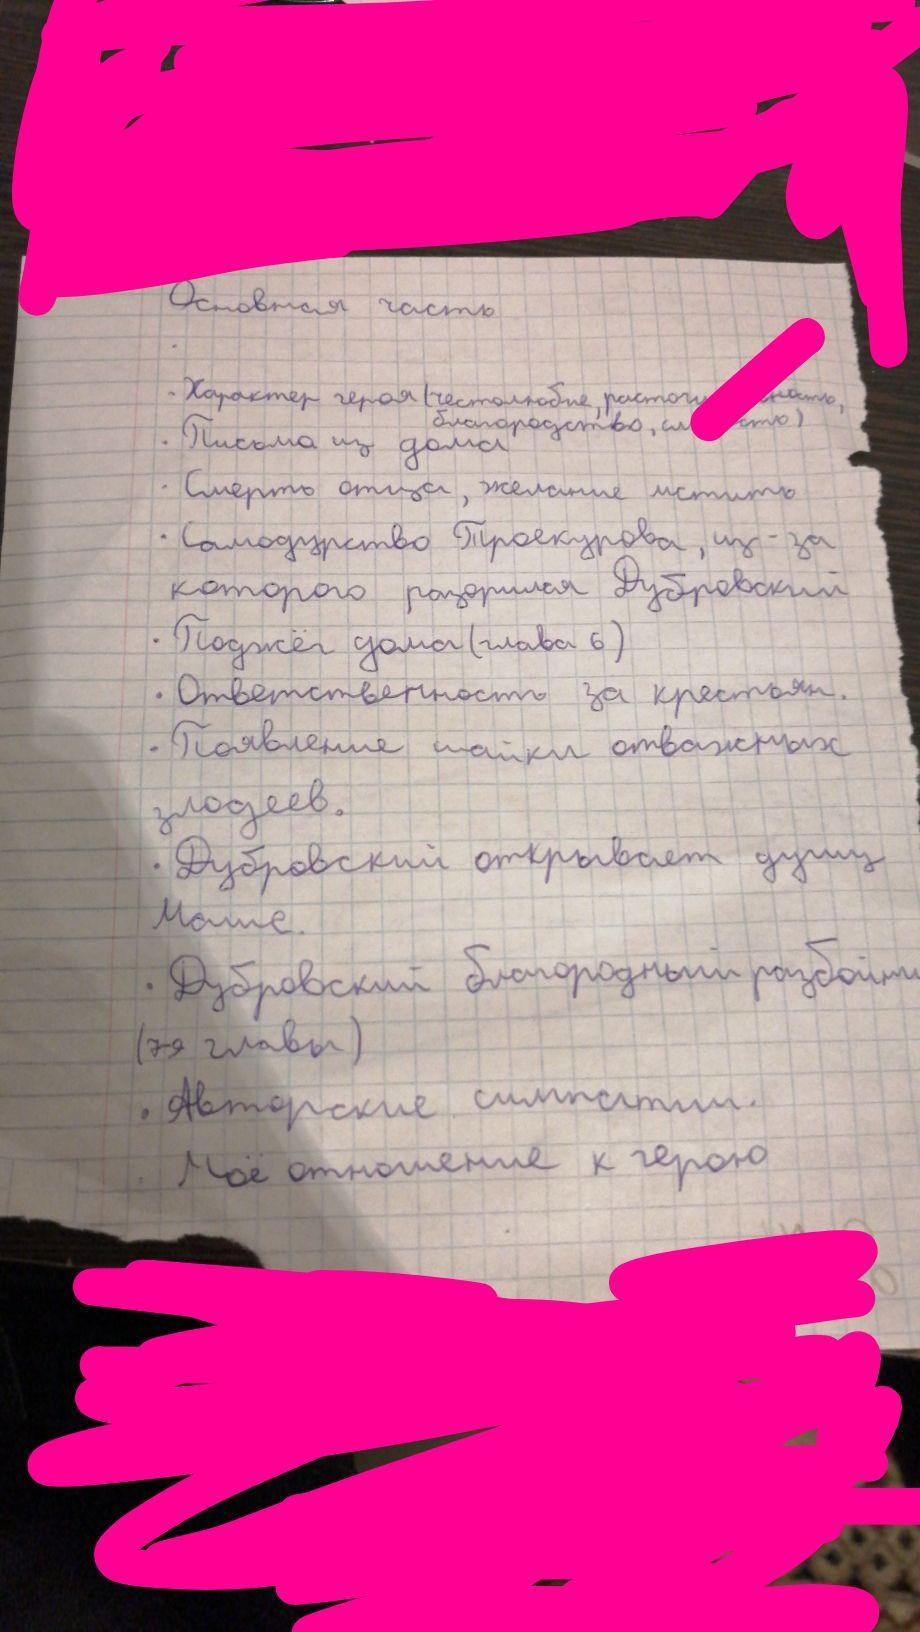 Основная часть
· Характер героя (честолюбие,
благородство,
· Письма из дома
· Смерть отца, желание мстить
· Самодурство Троекурова, из-за
которого разорился Дубровский
· Поджёг дома (глава 6)
· Ответственность за крестьян.
· Появление шайки отважных
злодеев.
· Дубровский открывает душу
Маше.
· Дубровский благородный
(7-я главы)
· Авторские симпатии.
Моё отношение к герою